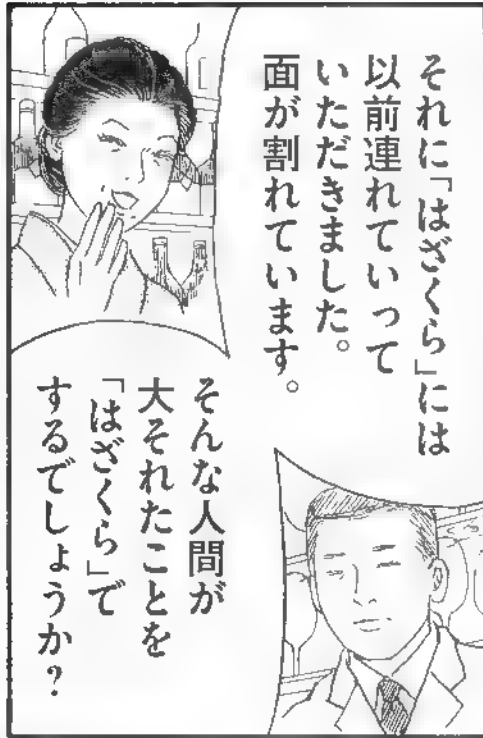 それに「はざくら」には
以前連れていって
いただきました。
面が割れています。
そんな人間が
大それたことを
「はざくら」で
するでしょうか？